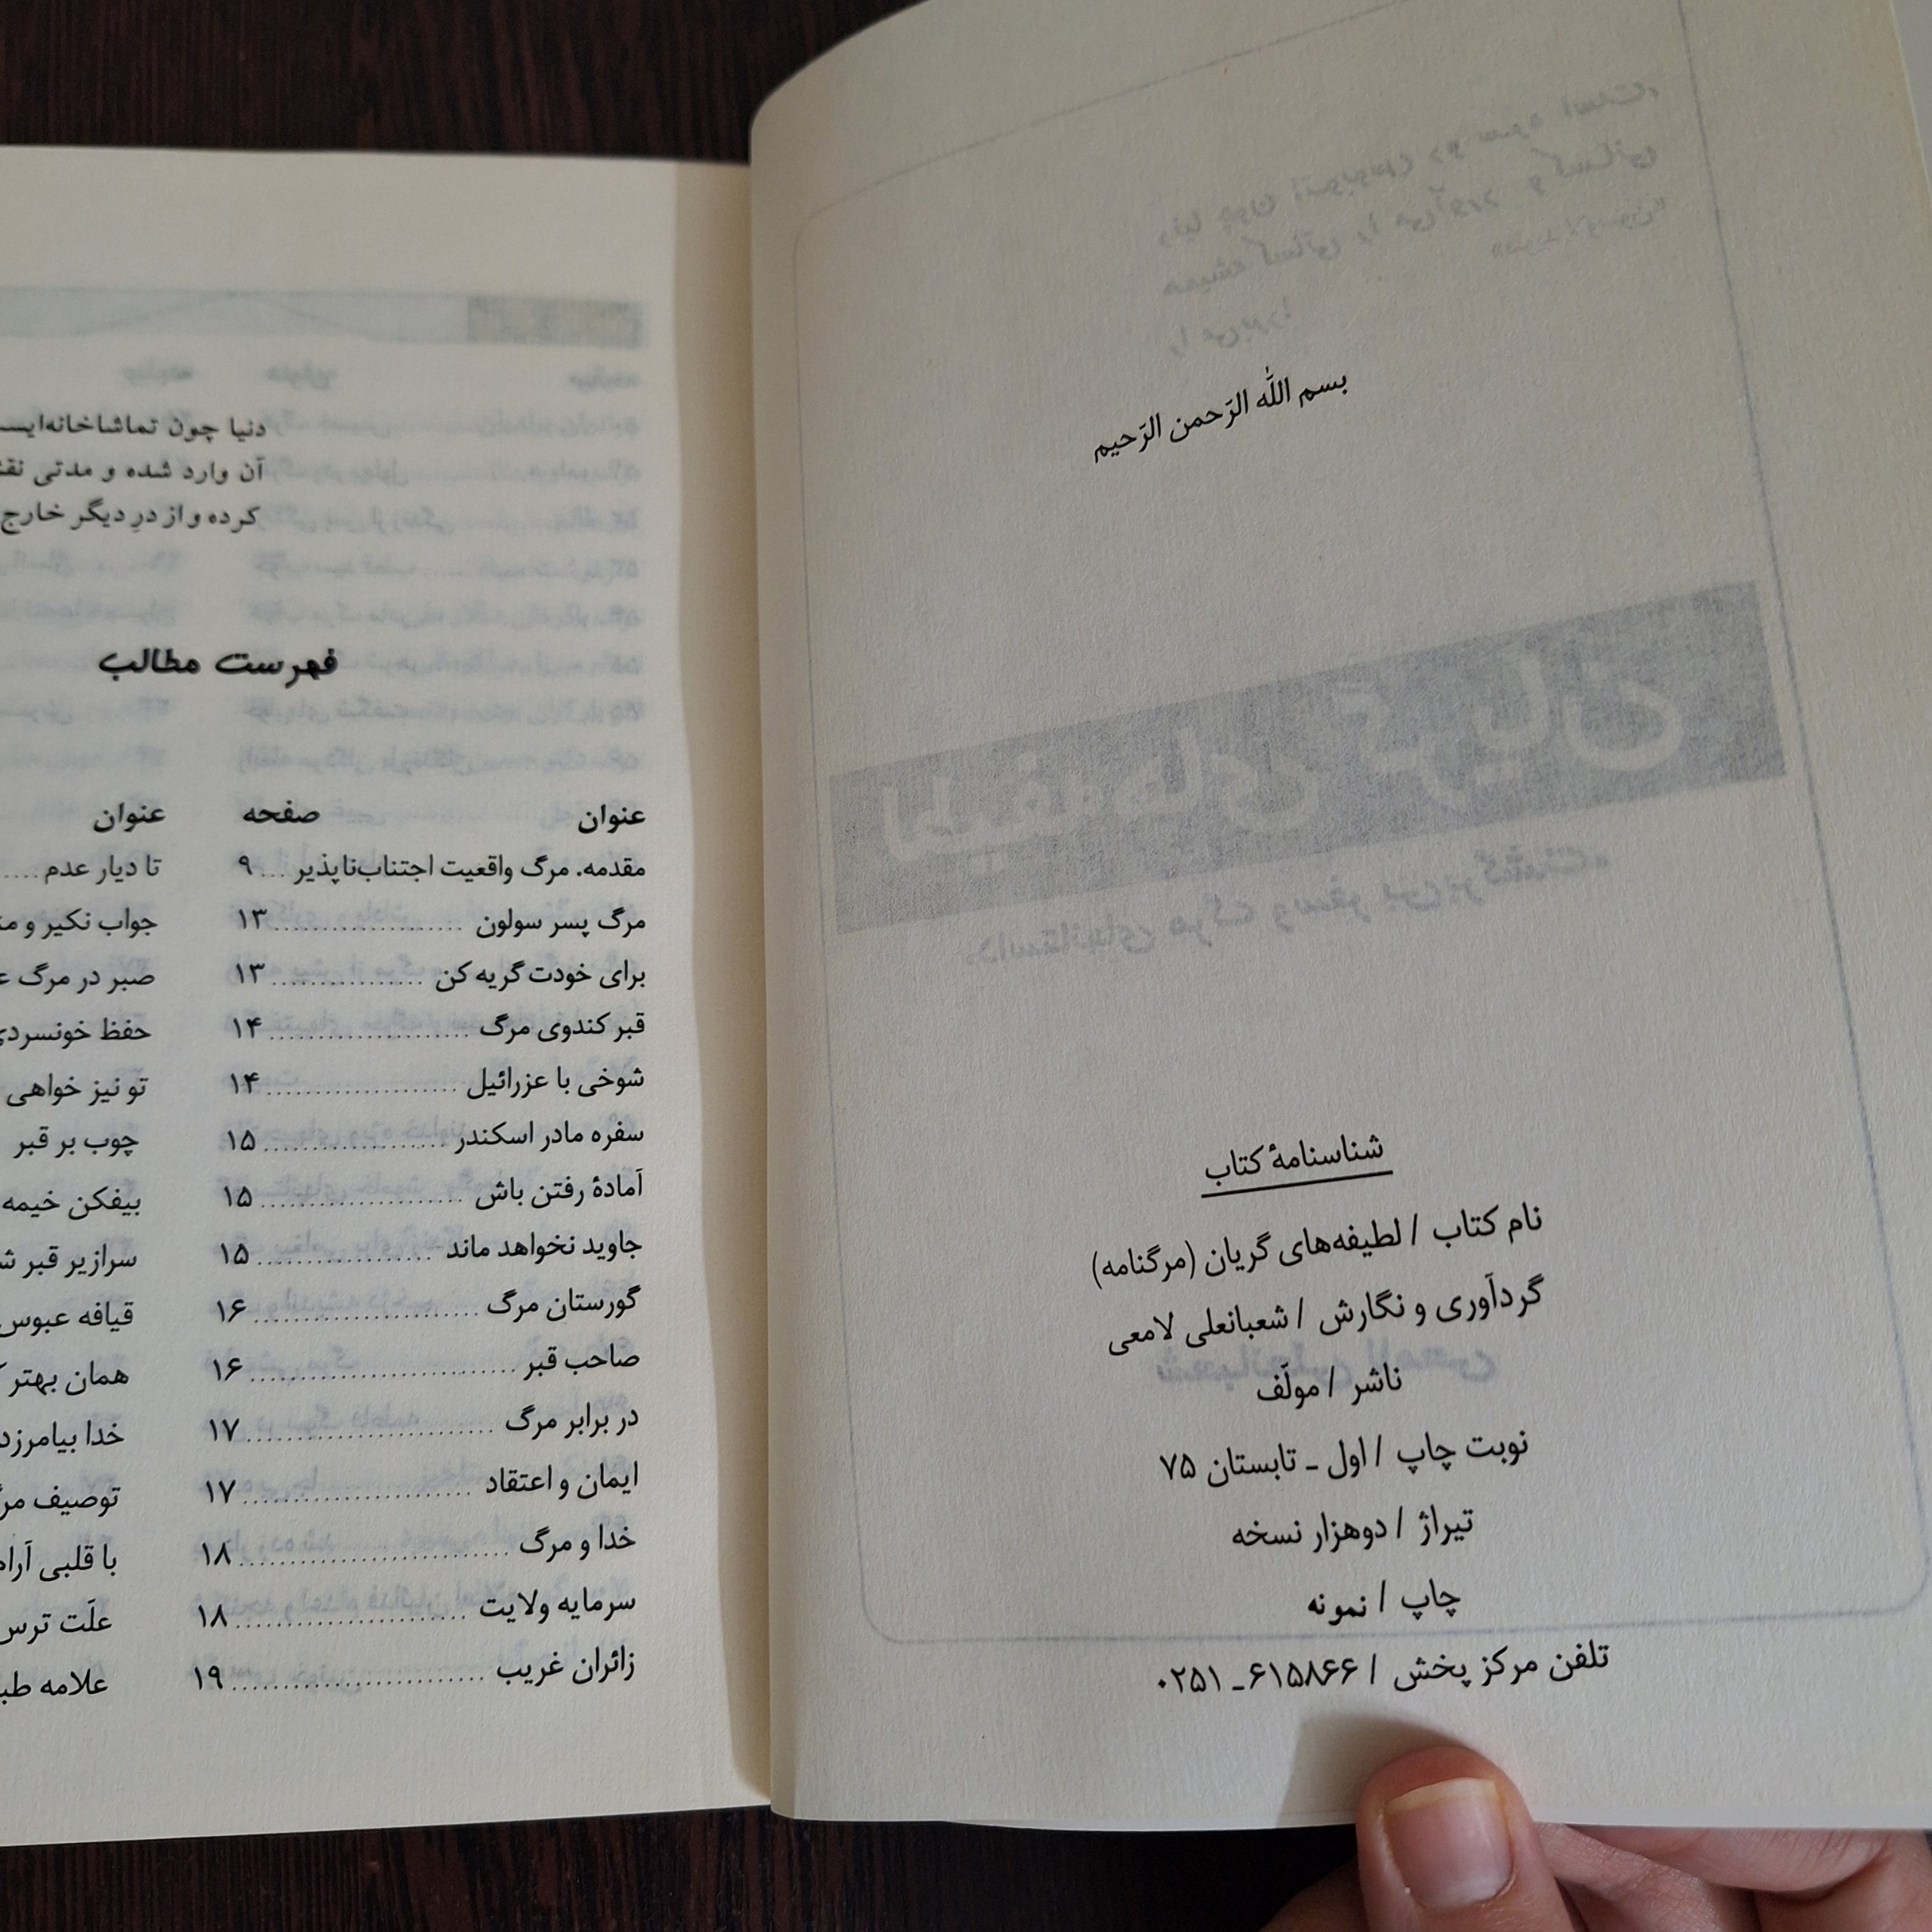 بسم اللّٰه الرّحمن الرّحیم
شناسنامهٔ کتاب
نام کتاب / لطیفه‌های گریان (مرگنامه)
گردآوری و نگارش / شعبانعلی لامعی
ناشر / مولّف
نوبت چاپ / اول ـ تابستان ۷۵
تیراژ / دوهزار نسخه
چاپ / نمونه
تلفن مرکز پخش / ۶۱۵۸۶۶ـ ۰۲۵۱
دنیا چون تماشاخانه‌ایست
آن وارد شده و مدتی نقش
کرده و از درِ دیگر خارج
فهرست مطالب
عنوان صفحه
مقدمه. مرگ واقعیت اجتناب‌ناپذیر ... ۹
مرگ پسر سولون ........ ۱۳
برای خودت گریه کن ........ ۱۳
قبر کندوی مرگ ........ ۱۴
شوخی با عزرائیل ........ ۱۴
سفره مادر اسکندر ........ ۱۵
آمادهٔ رفتن باش ........ ۱۵
جاوید نخواهد ماند ........ ۱۵
گورستان مرگ ........ ۱۶
صاحب قبر ........ ۱۶
در برابر مرگ ........ ۱۷
ایمان و اعتقاد ........ ۱۷
خدا و مرگ ........ ۱۸
سرمایه ولایت ........ ۱۸
زائران غریب ........ ۱۹
عنوان
تا دیار عدم .....
جواب نکیر و
صبر در مرگ
حفظ خونسردی
تو نیز خواهی
چوب بر قبر
بیفکن خیمه
سرازیر قبر
قیافه عبوس
همان بهتر
خدا بیامرزد
توصیف
با قلبی آرام
علّت ترس
علامه